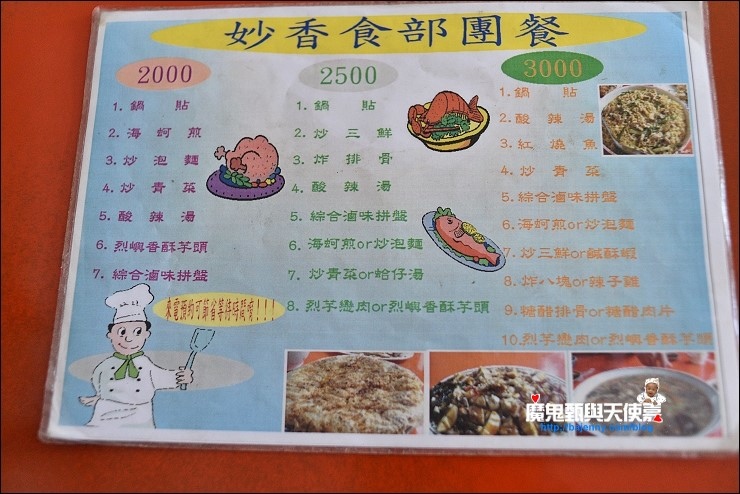 妙香食部團餐
2000
1. 鍋 貼
2. 海蚵煎
3. 炒泡麵
4. 炒青菜
5. 酸辣湯
6. 烈嶼香酥芋頭
7. 綜合滷味拼盤
來電預約可節省等待時間噢!!!
2500
1. 鍋 貼
2. 炒三鮮
3. 炸排骨
4. 酸辣湯
5. 綜合滷味拼盤
6. 海蚵煎or炒泡麵
7. 炒青菜or蛤仔湯
8. 烈芋戀肉or烈嶼香酥芋頭
3000
1. 鍋 貼
2. 酸辣湯
3. 紅燒魚
4. 炒青菜
5. 綜合滷味拼盤
6. 海蚵煎or炒泡麵
7. 炒三鮮or鹹酥蝦
8. 炸八塊or辣子雞
9. 糖醋排骨or糖醋肉片
10. 烈芋戀肉or烈嶼香酥芋頭
魔鬼甄與天使嘉